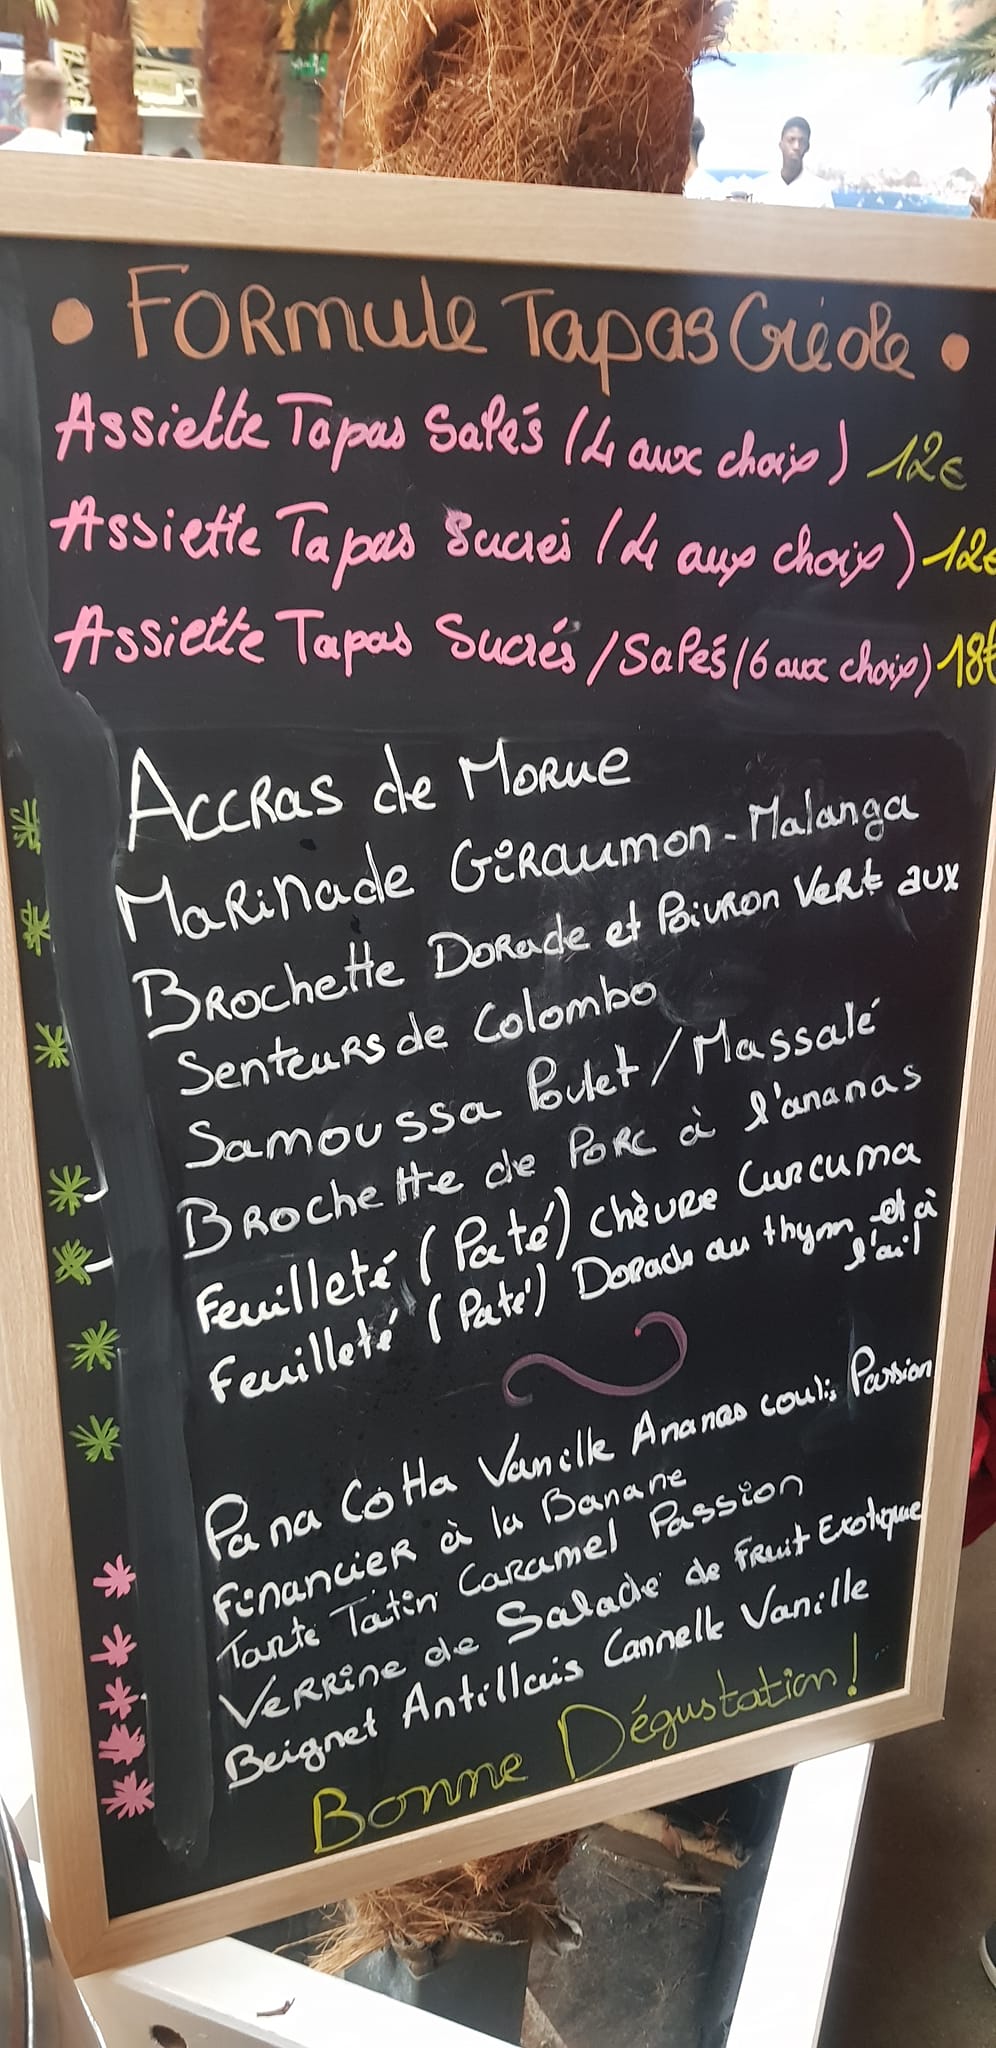 • Formule Tapas Créole •
Assiette Tapas Salés (4 aux choix) 12€
Assiette Tapas Sucrés (4 aux choix) 12€
Assiette Tapas Sucrés / Salés (6 aux choix) 18€
Accras de Morue
Marinade Giraumon - Malanga
Brochette Dorade et Poivron Vert aux
Senteurs de Colombo
Samoussa Poulet / Massalé
Brochette de Porc à l'ananas
Feuilleté (Paté) chèvre Curcuma
Feuilleté (Paté) Dorade au thym et à
l'ail
Pana Cotta Vanille Ananas coulis Passion
Financier à la Banane
Tarte Tatin Caramel Passion
Verrine de Salade de Fruit Exotique
Beignet Antillais Cannelle Vanille
Bonne Dégustation !